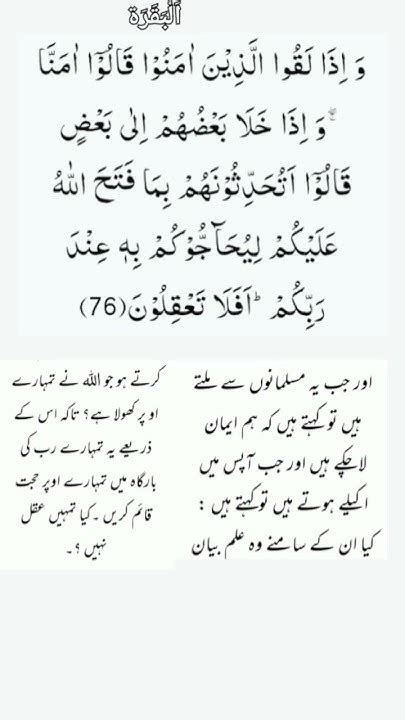 اَلْبَقَرَة
وَ اِذَا لَقُوا الَّذِیْنَ اٰمَنُوْا قَالُوْۤا اٰمَنَّا
ۚۖ وَ اِذَا خَلَا بَعْضُهُمْ اِلٰى بَعْضٍ
قَالُوْۤا اَتُحَدِّثُوْنَهُمْ بِمَا فَتَحَ اللّٰهُ
عَلَیْكُمْ لِیُحَآجُّوْكُمْ بِهٖ عِنْدَ
رَبِّكُمْؕ-اَفَلَا تَعْقِلُوْنَ(76)
اور جب یہ مسلمانوں سے ملتے
ہیں تو کہتے ہیں کہ ہم ایمان
لاچکے ہیں اور جب آپس میں
اکیلے ہوتے ہیں تو کہتے ہیں :
کیا ان کے سامنے وہ علم بیان
کرتے ہو جو اللہ نے تمہارے
اوپر کھولا ہے؟ تاکہ اس کے
ذریعے یہ تمہارے رب کی
بارگاہ میں تمہارے اوپر حجت
قائم کریں ۔کیا تمہیں عقل
نہیں ؟۔